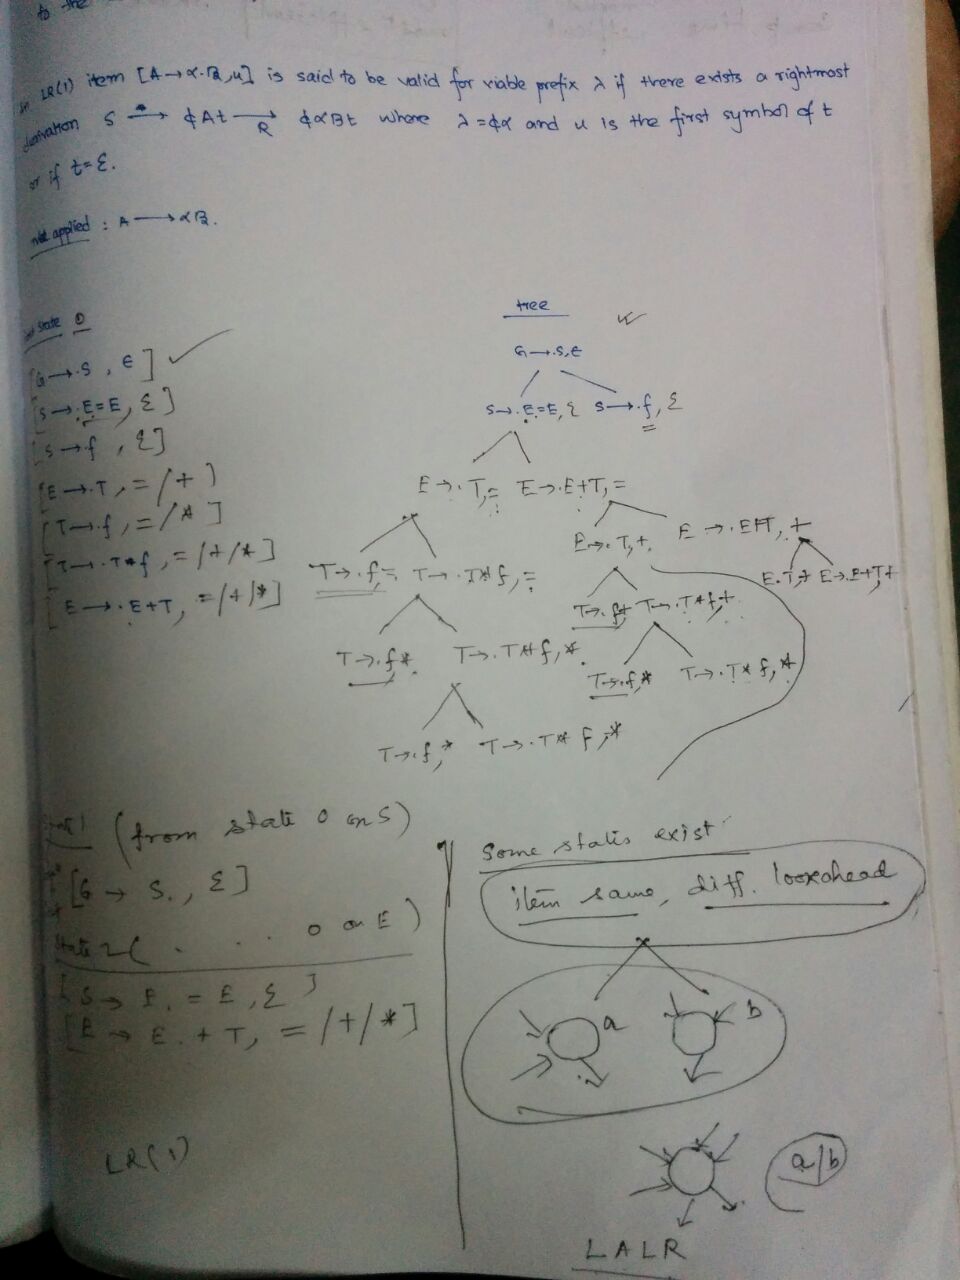 to the
LR(1) item [A→α.B,u] is said to be valid for viable prefix λ if there exists a rightmost
derivation S *→ ϕAt →R ϕαBt where λ=ϕα and u is the first symbol of t
or if t=ε.
Not applied : A→αB.
State 0
[G→.S , ε]
[S→.E=E, ε]
[S→.f , ε]
[E→.T , =/+]
[T→.f, =/*]
[T→.T*f, =/+/*]
[E→.E+T, =/+/*]
tree
G→.S,ε
S→.E=E, ε S→.f, ε
E→.T,= E→.E+T,=
E→.T,+ E→.E+T, +
T→.f,= T→.T*f,= E.T,+ E→.E+T,+
T→.f,+ T→.T*f,+
T→.f,* T→.T*f,*
T→.f,* T→.T*f,*
T→.f,* T→.T*f,*
(from state 0 on S)
[G → S., ε]
State 2( . . . 0 on E)
[S→ E. = E, ε]
[E → E. + T, = /+/*]
LR(1)
Some states exist
item same, diff. lookahead
a b
a/b
LALR